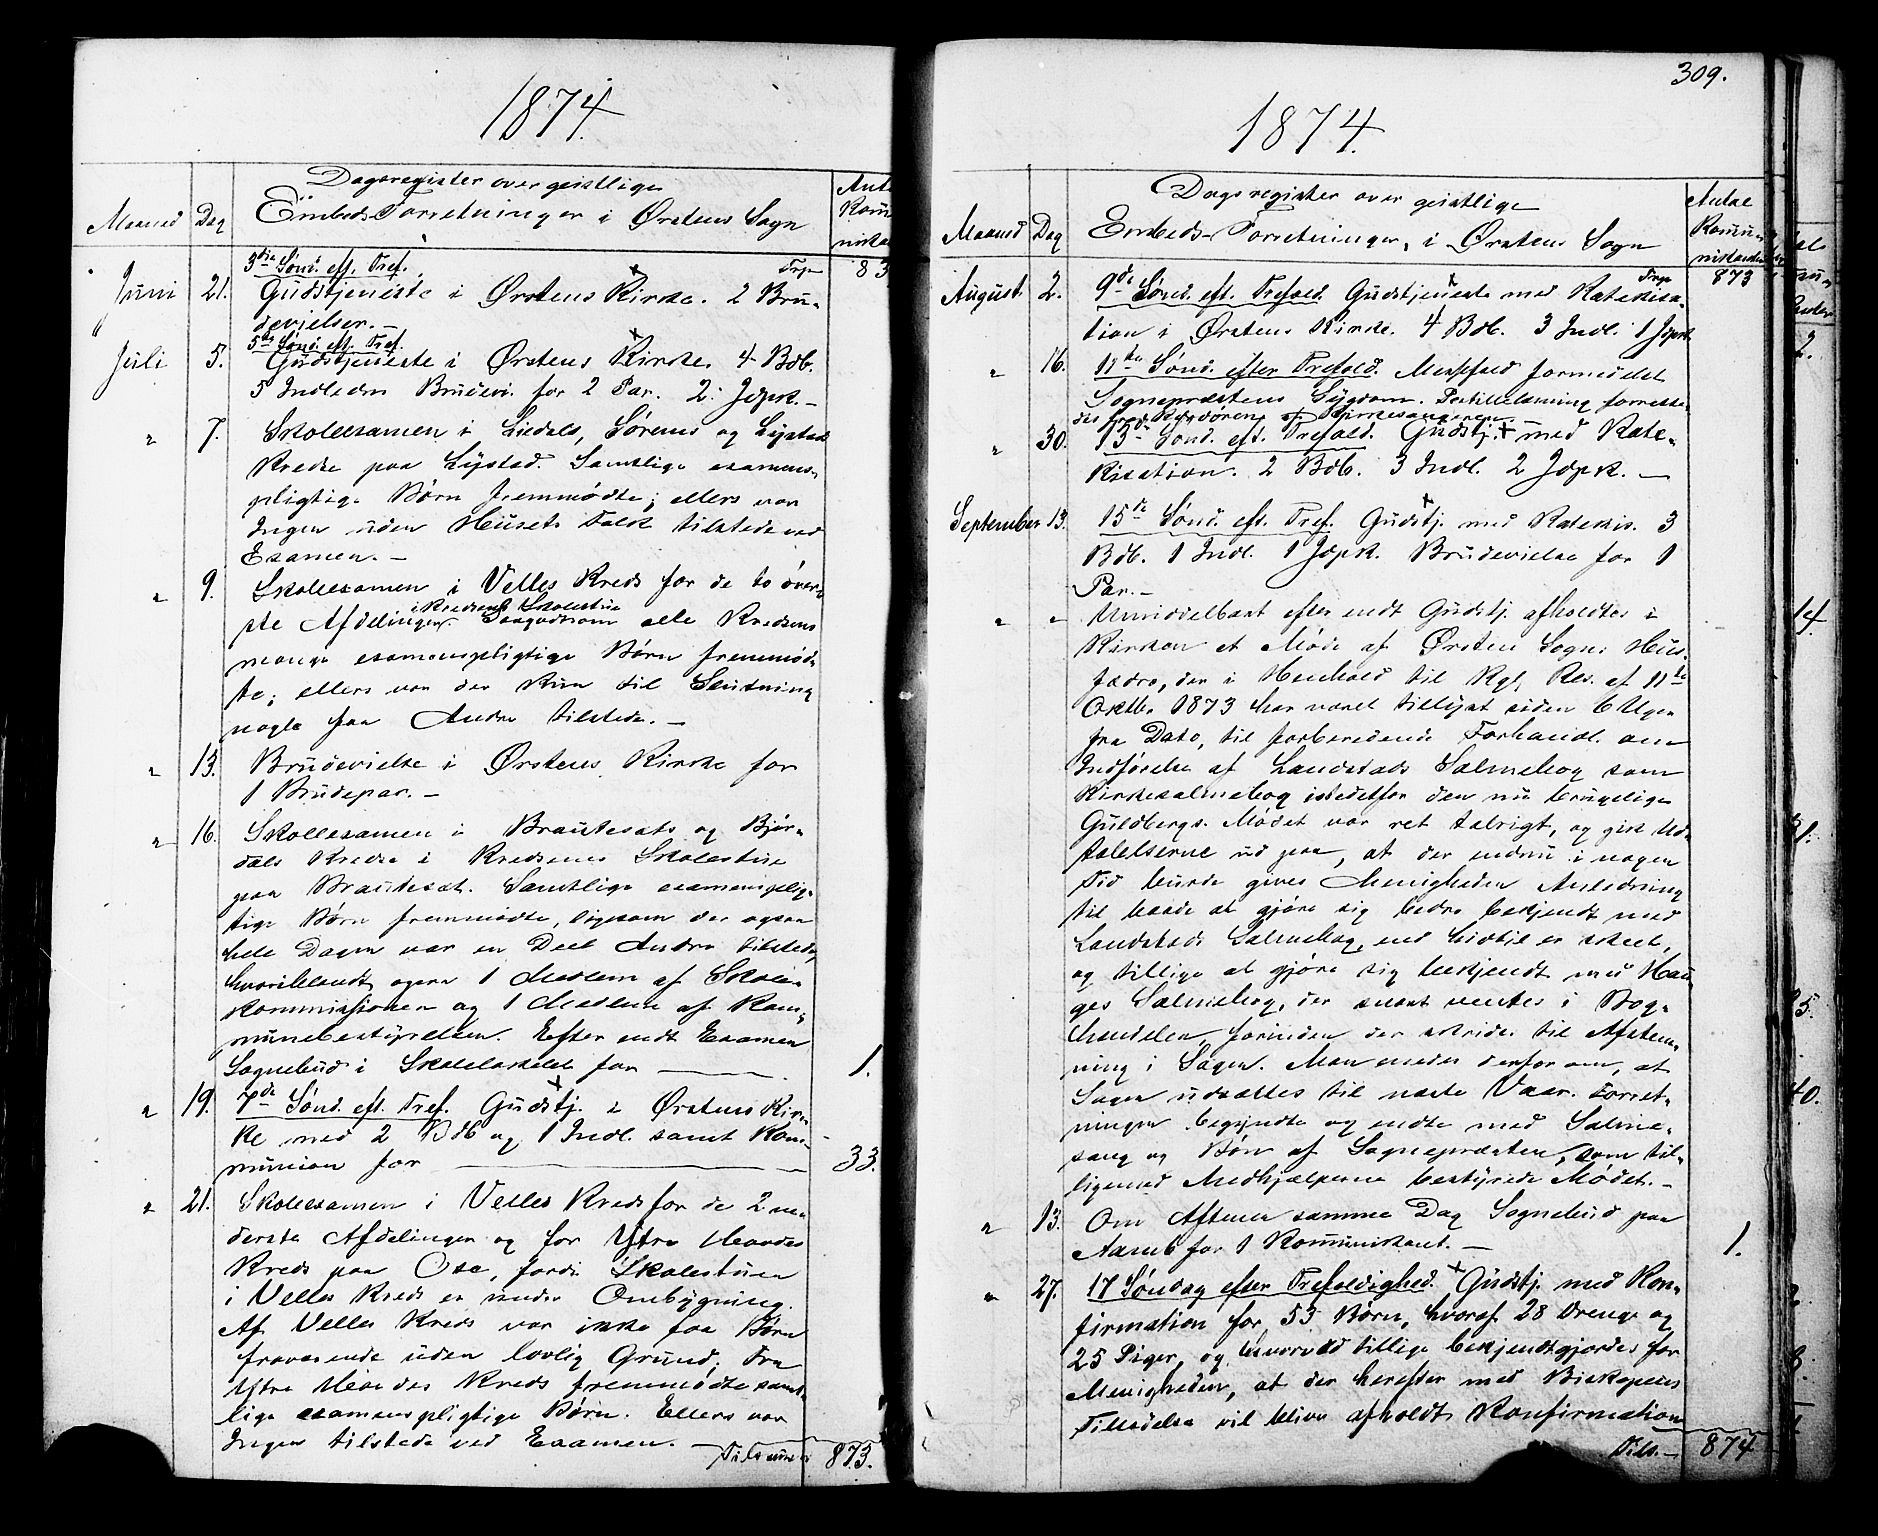 1874.
Dagsregister over geistlige
Maaned Dag Embeds-Forretninger i Ørstens Sogn
3die Sønd. eft. Tref. Trp 83
Juni 21. Gudstjeneste i Ørstens Kirke. 2 Bru-
devielser. —
5te Sønd. eft. Tref.
Juli 5. Gudstjeneste i Ørstens Kirke. 4 Bdb.
5 Indledn Brudevi. for 2 Par. 2 Jdpk. —
" 7. Skoleexamen i Liedals, Sørenes og Lystad
Kredse paa Lystad. Samtlige examens-
pligtige Børn fremmødte; ellers var
Ingen uden Husets Folk tilstede ved
Examen. —
" 9. Skoleexamen i Velles Kreds for de to øver-
i Kredsens Skolestue
ste Afdelinger. Saagodtsom alle Kredsens
mange examenspligtige Børn fremmød-
te; ellers var der kun til Slutning
nogle faa Andre tilstede. —
" 13. Brudevielse i Ørstens Kirke for
1 Brudepar. —
" 16. Skoleexamen i Brautesæts og Bjør-
dals Kredse i Kredsenes Skolestue
paa Brautesæt. Samtlige examensplig-
tige Børn fremmødte, ligesom der ogsaa
hele Dagen var en Deel Andre tilstede,
hvoriblandt ogsaa 1 Medlem af Skole-
kommissionen og 1 Medlem af Kom-
munebestyrelsen. Efter endt Examen
Sognebud i Skolelokalet for — 1.
" 19. 7de Sønd. eft. Tref. Gudstj. i Ørstens Kir-
ke med 2 Bdb og 1 Indl. samt Kom-
munion for — 33.
" 21. Skoleexamen i Velles Kreds for de 2 ne-
derste Afdelinger og for Ytre Hovdes
Kreds paa Ose, fordi Skolestuen
i Velles Kreds er under Ombygning.
Af Velles Kreds var ikke faa Børn
fraværende uden lovlig Grund; fra
Ytre Hovdes Kreds fremmødte samt-
lige examenspligtige Børn. Ellers var
Ingen tilstede ved Examen. —
873.
309.
1874.
Dagsregister over geistlige Antal
Maaned Dag Embeds-Forretninger i Ørstens Sogn Kommu-
Trp 873
August. 2. 9de Sønd. eft. Trefold. Gudstjeneste med Katekisa-
tion i Ørstens Kirke. 4 Bdb. 3 Indl. 1 Jdpk.
" 16. 11te Sønd. efter Trefold. Messefald formedelst
Sognepræstens Sygdom. Postillelæsning forrette-
des fra Kordøren af Kirkesangeren
" 30. 13de Sønd. eft. Trefold. Gudstj. med Kate-
kisation. 2 Bdb. 3 Indl. 2 Jdpk. —
September 13. 15de Sønd. eft. Tref. Gudstj. med Katekis. 3
Bdb. 1 Indl. 1 Jdpk. Brudevielse for 1
Par. —
" " Umiddelbart efter endt Gudstj. afholdtes i
Kirken et Møde af Ørsten Sogns Hus-
fædre, der i Henhold til Kgl. Res. af 11te
Oktbr 1873 har været tillyst siden 6 Uger
fra Dato, til forberedende Forhandl. om
Indførelse af Landstads Salmebog som
Kirkesalmebog istedetfor den nu brugelige
Guldbergs. Mødet var ret talrigt, og gik Ud-
talelserne ud paa, at der endnu i nogen
Tid burde gives Menigheden Anledning
til baade at gjøre sig bedre bekjendt med
Landstads Salmebog, end hidtil er skeet,
og tillige at gjøre sig bekjendt med Hau-
ges Salmebog, der snart ventes i Bog-
handelen, forinden der skrides til Afstem-
ning i Sagen. Man enedes derfor om, at
Sagen udsættes til næste Vaar. Forret-
ningen begyndte og endte med Salme-
sang og Bøn af Sognepræsten, som til-
ligemed Medhjælperne bestyrede Mødet. —
" 13. Om Aftenen samme Dag Sognebud paa
Aasnes for 1 Kommunikant. — 1.
" 27. 17 Søndag efter Trefoldighed. Gudstj. med Kon-
firmation for 53 Børn, hvoraf 28 Drenge og
25 Piger, og hvorved tillige bekjendtgjordes for
Menigheden, at der herefter med Biskopens
Tilladelse vil blive afholdt Konfirmation
Tils. — 874